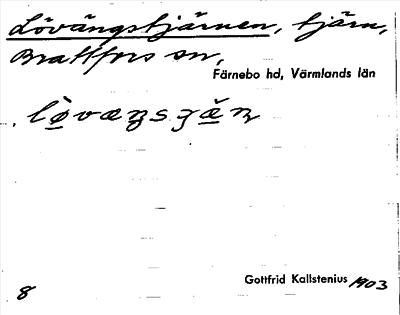 Lövängstjärnen, tjärn,
Brattfors sn,
Färnebo hd, Värmlands län
Gottfrid Kallstenius 1903
8